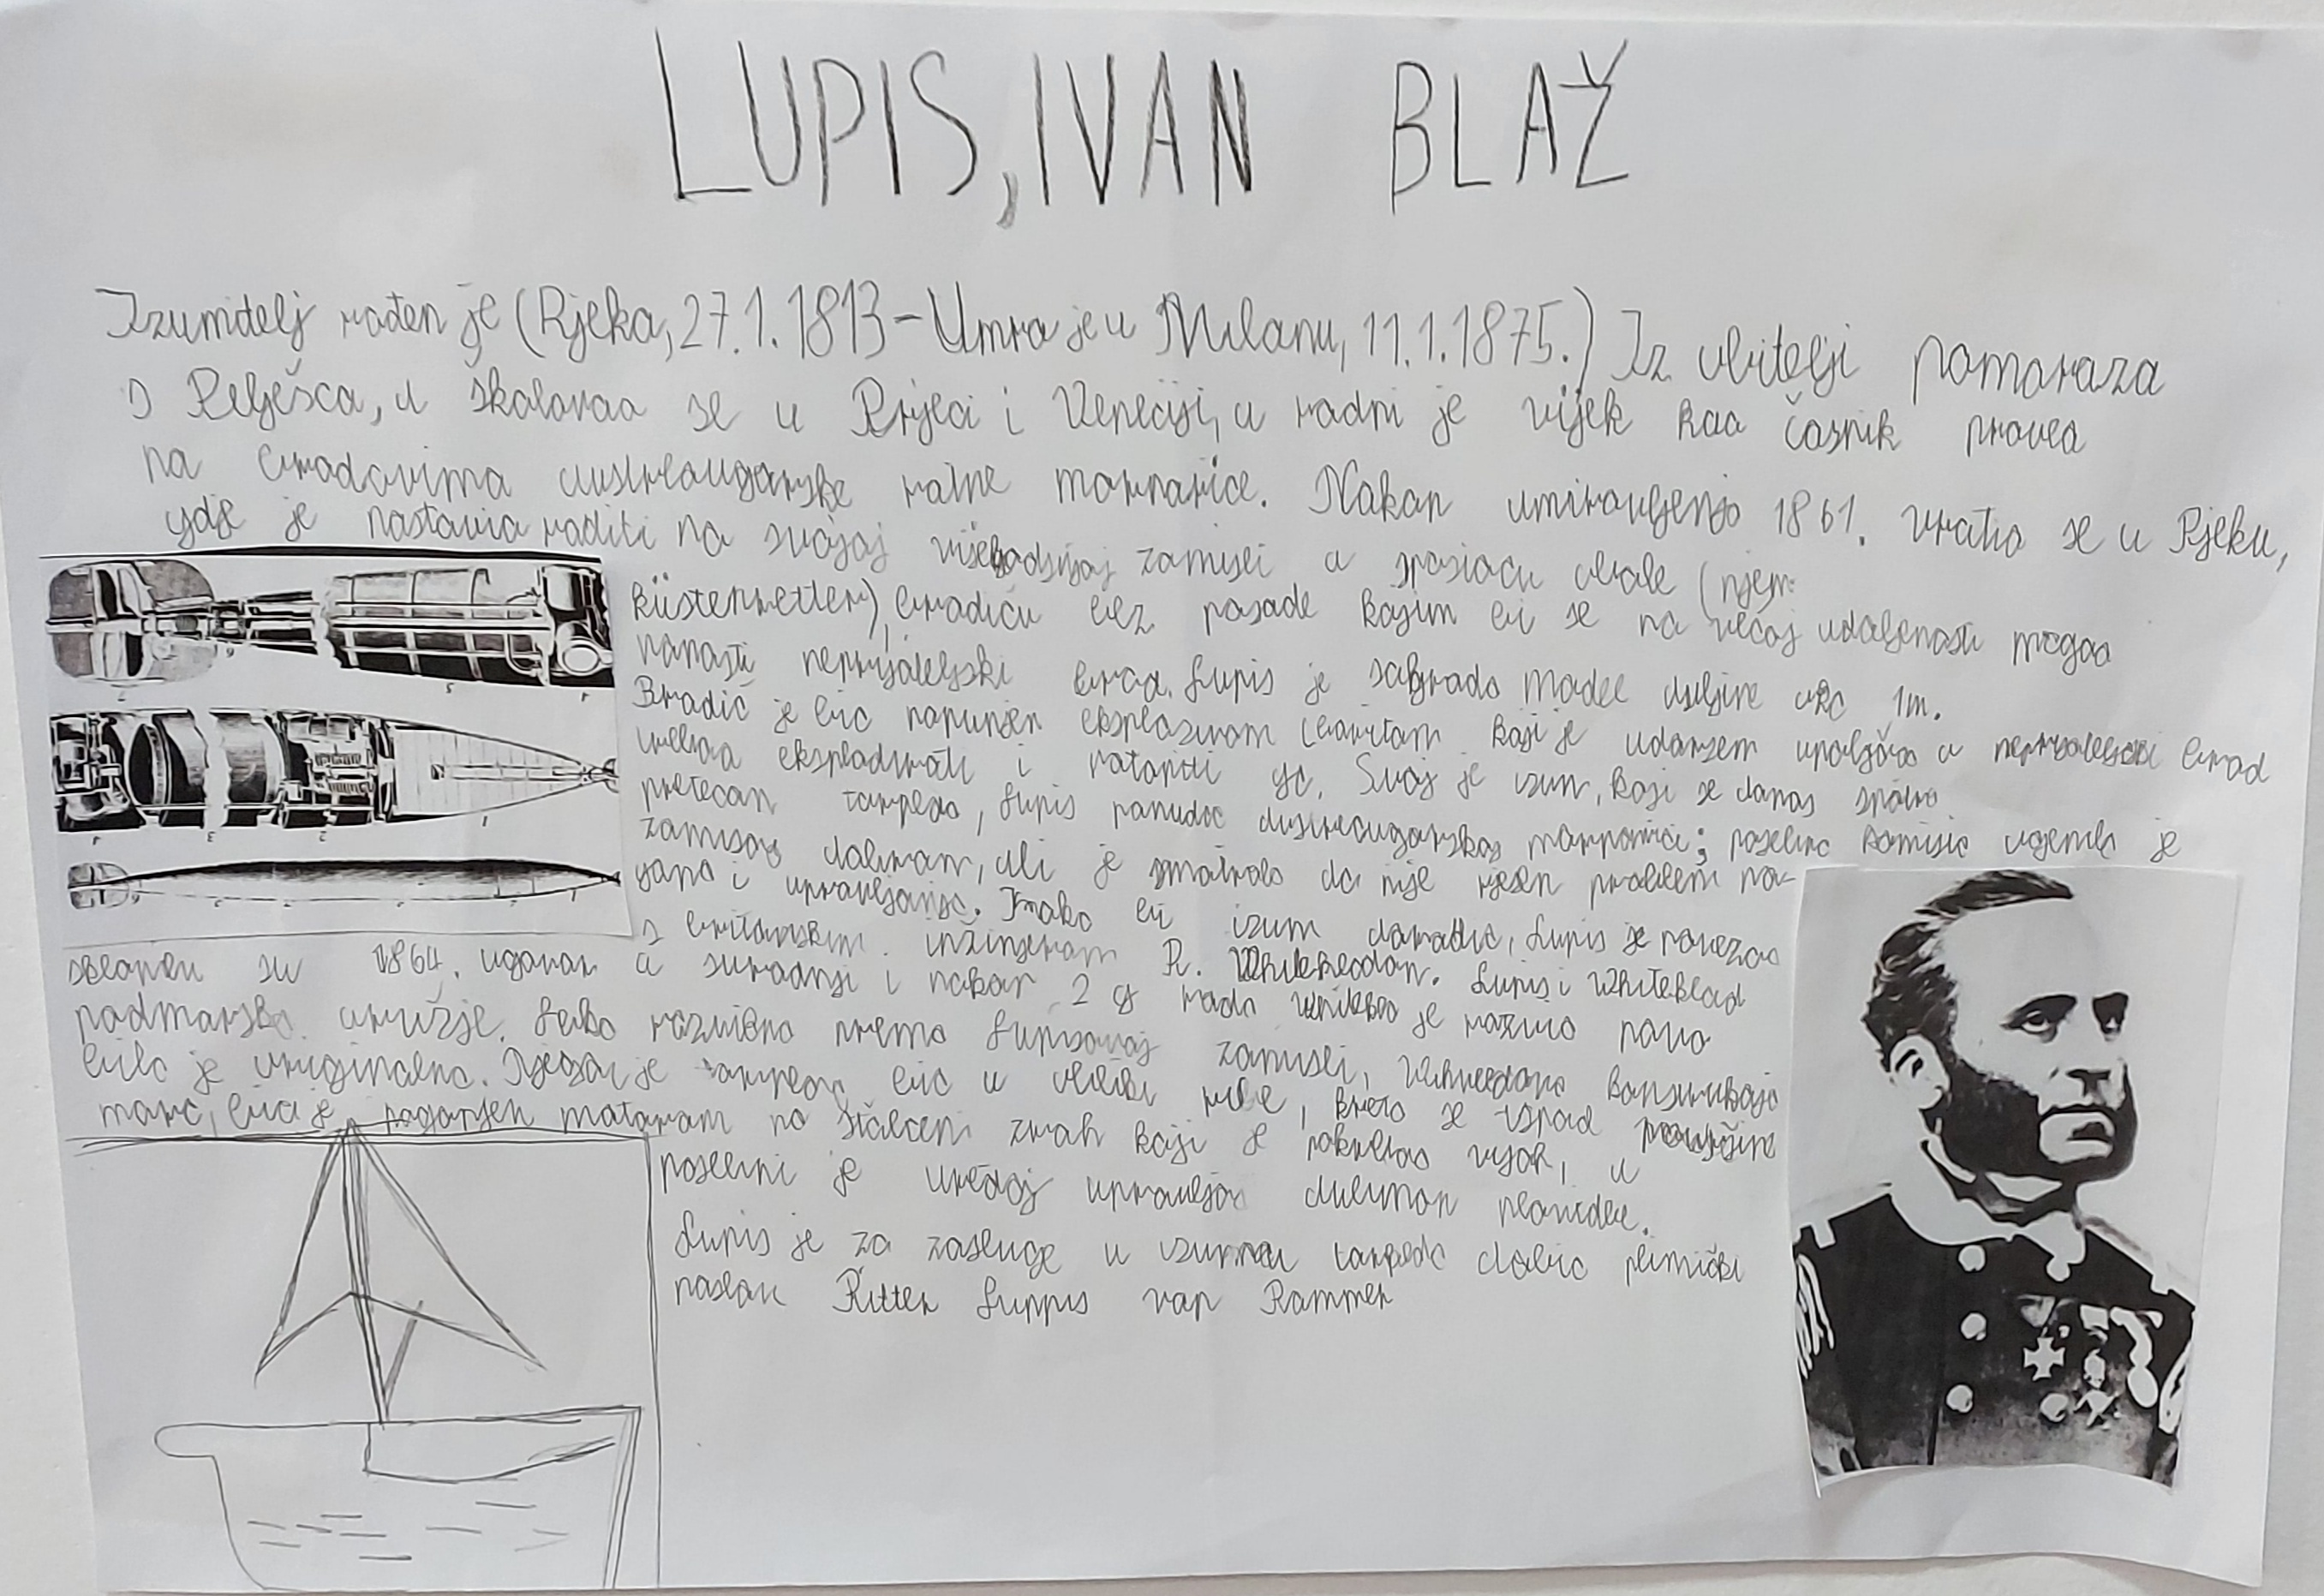 LUPIS, IVAN BLAŽ
Izumitelj rođen je (Rjeka, 27.1.1813 – Umro je u Milanu, 11.1.1875.) Iz obitelji pomoraza
s Pelješca, a školovao se u Rijeci i Veneciji, a radni je vijek kao časnik proveo
na brodovima austrougarske ratne mornarice. Nakon umirovljenja 1861. vratio se u Rjeku,
gdje je nastavio raditi na svojoj zamisli o spasiocu obale (njem.
küstenretter), brodiću bez posade kojim bi se na većoj udaljenosti mogao
nanosti neprijateljski brod. Lupis je sagradio model duljine oko 1m.
Brodić je bio napunjen eksplozivom koji je udarcem upaljača u neprijateljski brod
trebao eksplodirati i potopiti ga. Svoj je izum, koji se danas
torpeda, Lupis ponudio austrougarskoj mornarici; posebno komisija ocjenila je
zamisao dobrom, ali je smatralo da nije rješen problem po-
gona i upravljanja. Kako bi izum doradio, Lupis je povezao
s britanskim inžinjerom R. Whiteheadom. Lupis i Whitehead
sklopili su 1864. ugovor o suradnji i nakon 2 g rada je razvio novo
podmorsko oružje. Iako prema Lupisovoj zamisli, konstrukcija
bila je originalna. Njegov je torpedo bio u obliku ribe, kreto se ispod površine
mora, bio je pogonjen motorom na stlačeni zrak koji je pokretao vijak, a
posebni je uređaj upravljao dubinom plovidbe.
Lupis je za zasluge u izumu torpeda dobio plemićki
naslov Ritter Luppis von Rammer